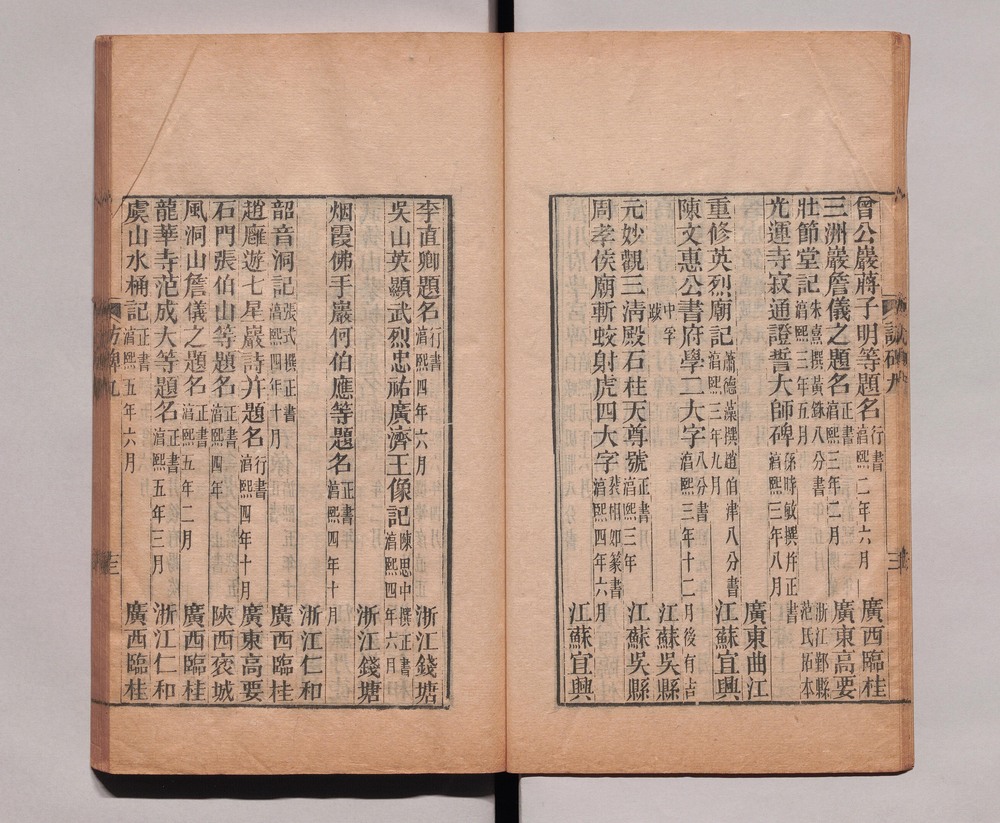 曾公巖蔣子明等題名行書淳熙二年六月 廣西臨桂
三洲巖詹儀之題名正書淳熙三年二月 廣東高要
壯節堂記朱熹撰黃銖八分書淳熙三年五月 浙江鄞縣范氏拓本
光運寺寂通證誓大師碑孫時敏撰并正書淳熙三年八月 廣東曲江
重修英烈廟記蕭德藻撰趙伯津八分書淳熙三年九月 江蘇宜興
陳文惠公書府學二大字八分書淳熙三年十二月後有吉中孚跋 江蘇吳縣
元妙觀三淸殿石柱天尊號正書淳熙三年 江蘇吳縣
周孝侯廟斬蛟射虎四大字裴相如篆書淳熙四年六月 江蘇宜興
李直卿題名行書淳熙四年六月 浙江錢塘
吳山英顯武烈忠祐廣濟王像記陳思中撰正書淳熙四年六月 浙江錢塘
烟霞佛手巖何伯應等題名正書淳熙四年十月 浙江仁和
韶音洞記張式撰正書淳熙四年十月 廣西臨桂
趙廱遊七星巖詩幷題名行書淳熙四年十月 廣東高要
石門張伯山等題名正書淳熙四年 陝西褒城
風洞山詹儀之題名正書淳熙五年二月 廣西臨桂
龍華寺范成大等題名正書淳熙五年三月 浙江仁和
虞山水桶記正書淳熙五年六月 廣西臨桂